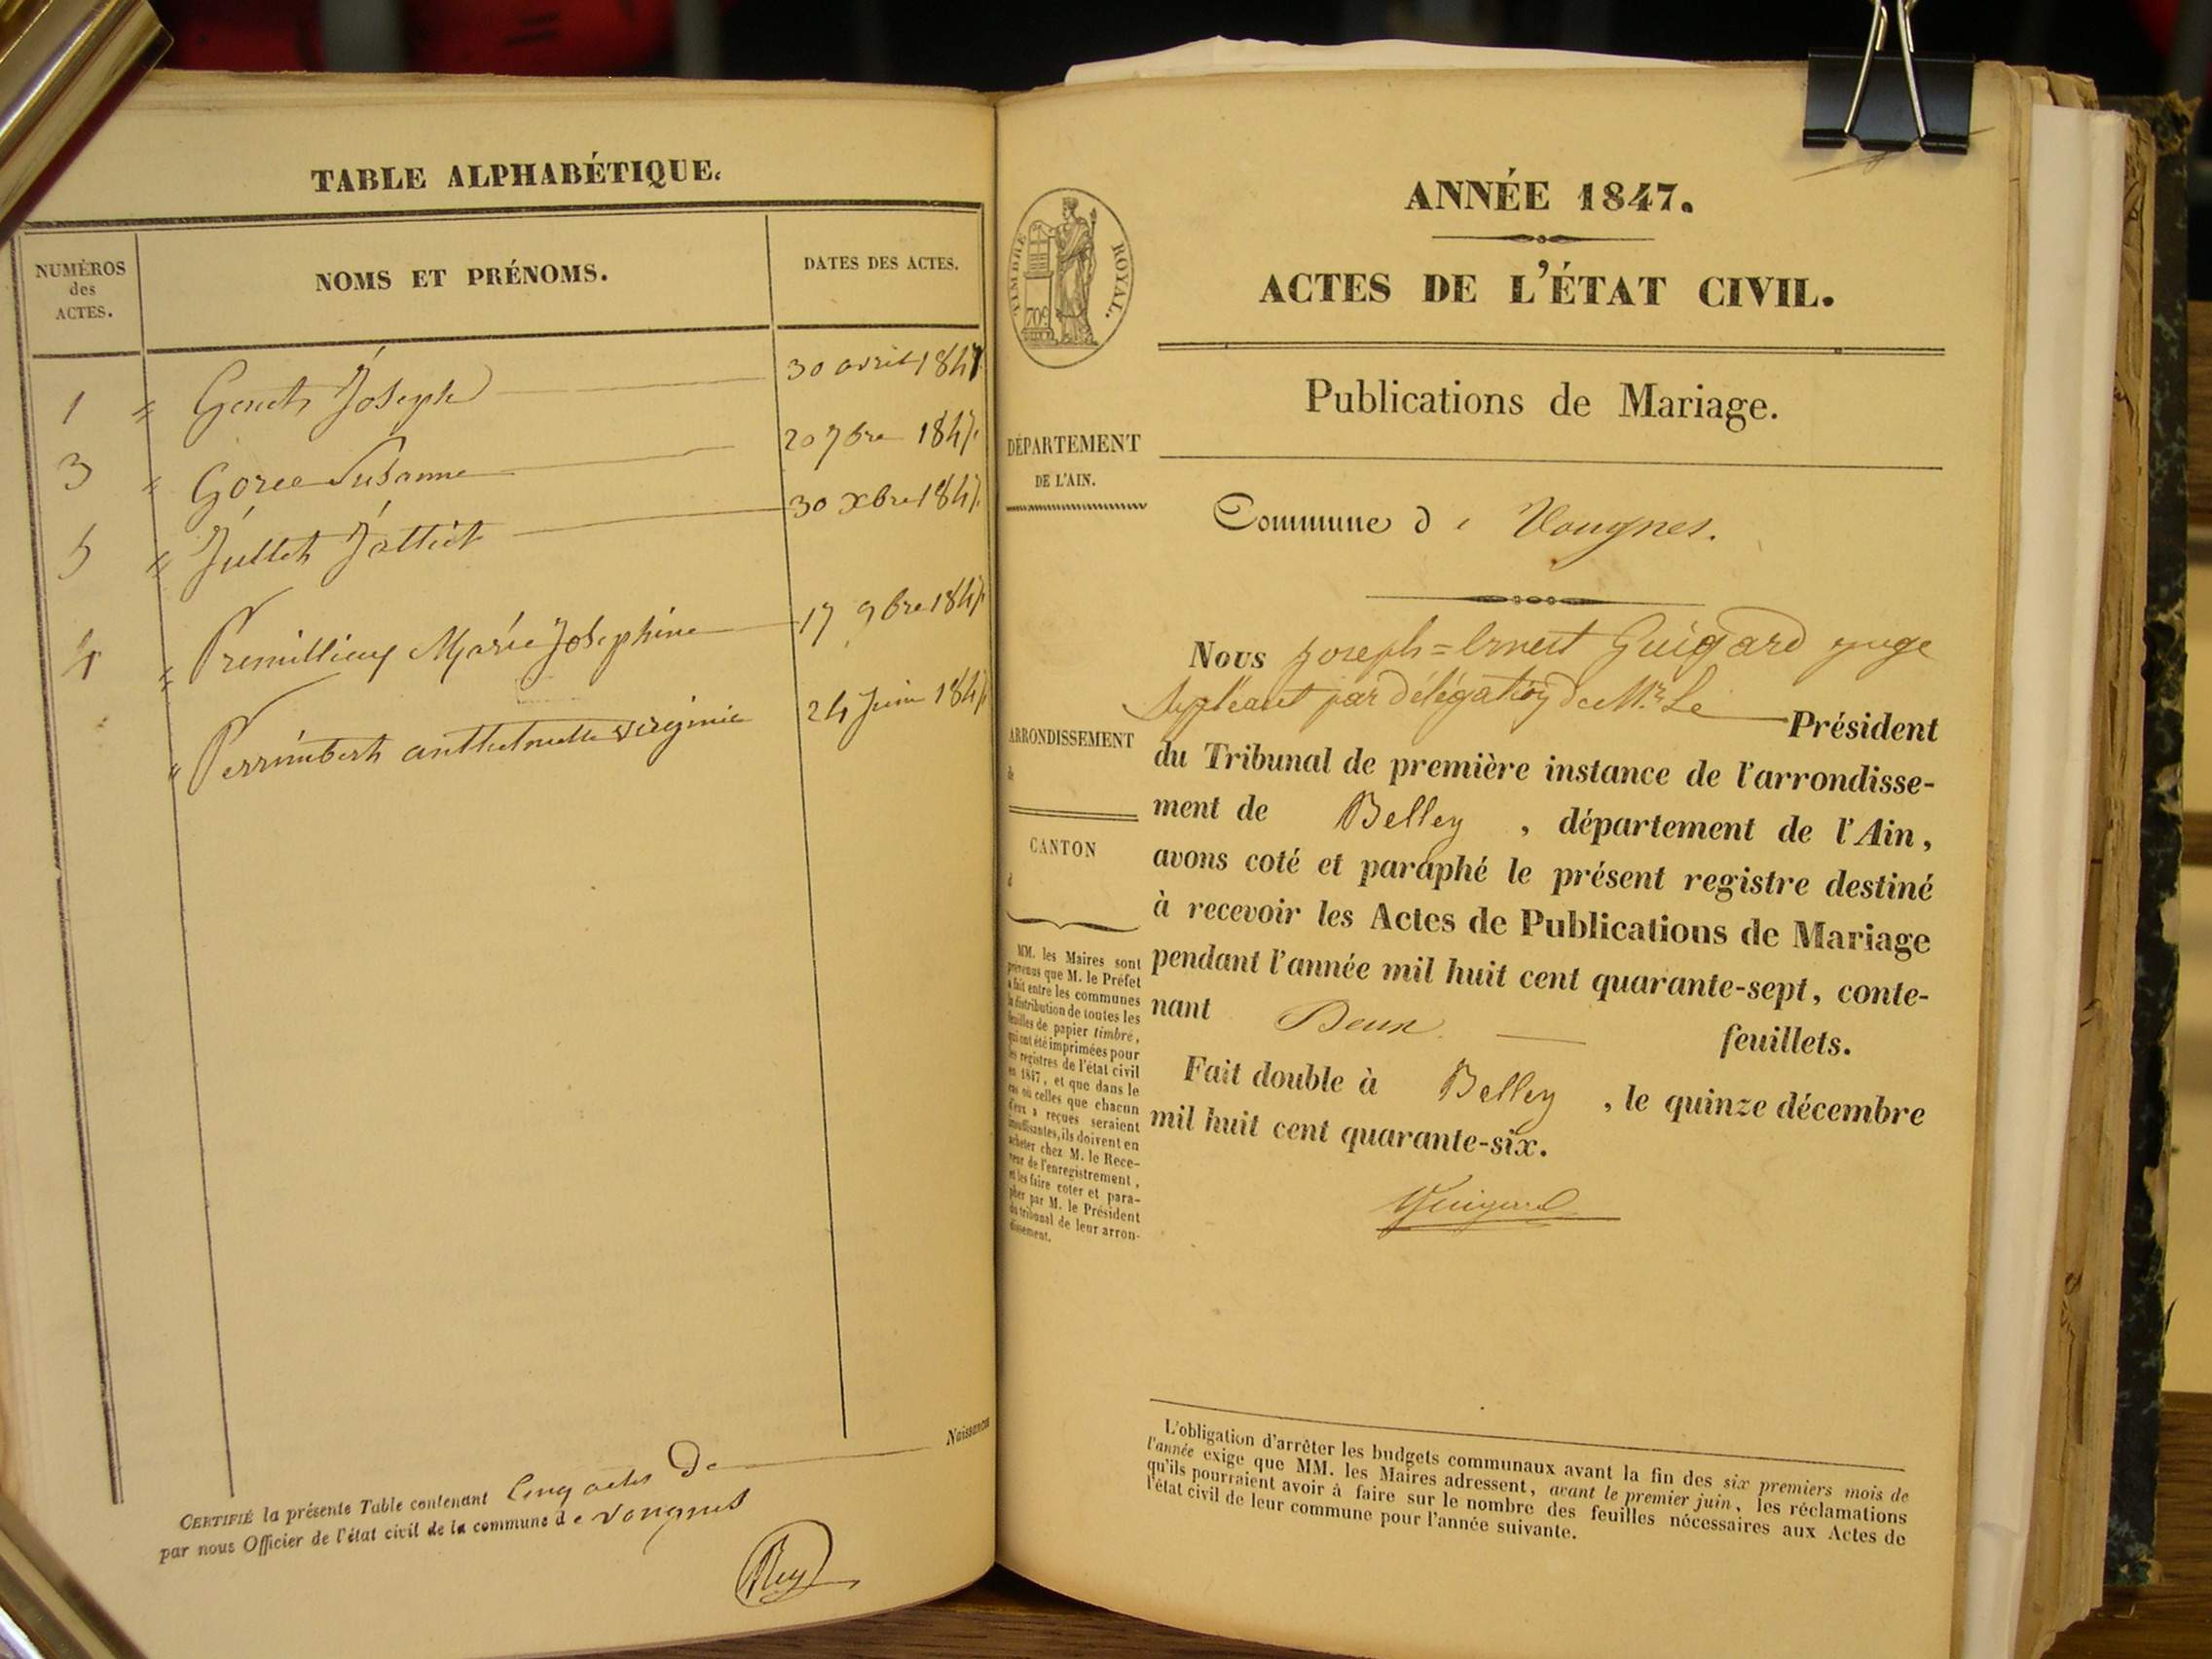 TABLE ALPHABÉTIQUE.
NUMÉROS
des
ACTES.
NOMS ET PRÉNOMS.
DATES DES ACTES.
1 " Genet Joseph 30 avril 1847
3 " Goree Susanne 20 7bre 1847
5 " Jullet 30 Xbre 1847
4 " Premillieux Marie Josephine 17 9bre 1847
" Perrimbert anthelmette virginie 24 Juin 1847
CERTIFIÉ la présente Table contenant Cinq actes De Naissances
par nous Officier de l'état civil de la commune de Vongnes
Rey
TIMBRE ROYAL.
70c
DÉPARTEMENT
DE L'AIN.
ARRONDISSEMENT
de
CANTON
d
MM. les Maires sont
prévenus que M. le Préfet
a fait entre les communes
la distribution de toutes les
feuilles de papier timbré,
qui ont été imprimées pour
les registres de l'état civil
en 1847, et que dans le
cas où celles que chacun
d'eux a reçues seraient
insuffisantes, ils doivent en
acheter chez M. le Rece-
veur de l'enregistrement,
et les faire coter et para-
pher par M. le Président
du tribunal de leur arron-
dissement.
ANNÉE 1847.
ACTES DE L'ÉTAT CIVIL.
Publications de Mariage.
Commune de Vongnes.
Nous joseph=Ernest Guigard juge
Suppléant par délégation de Mr. Le Président
du Tribunal de première instance de l'arrondisse-
ment de Belley, département de l'Ain,
avons coté et paraphé le présent registre destiné
à recevoir les Actes de Publications de Mariage
pendant l'année mil huit cent quarante-sept, conte-
nant Deux feuillets.
Fait double à Belley, le quinze décembre
mil huit cent quarante-six.
Guigard
L'obligation d'arrêter les budgets communaux avant la fin des six premiers mois de
l'année exige que MM. les Maires adressent, avant le premier juin, les réclamations
qu'ils pourraient avoir à faire sur le nombre des feuilles nécessaires aux Actes de
l'état civil de leur commune pour l'année suivante.